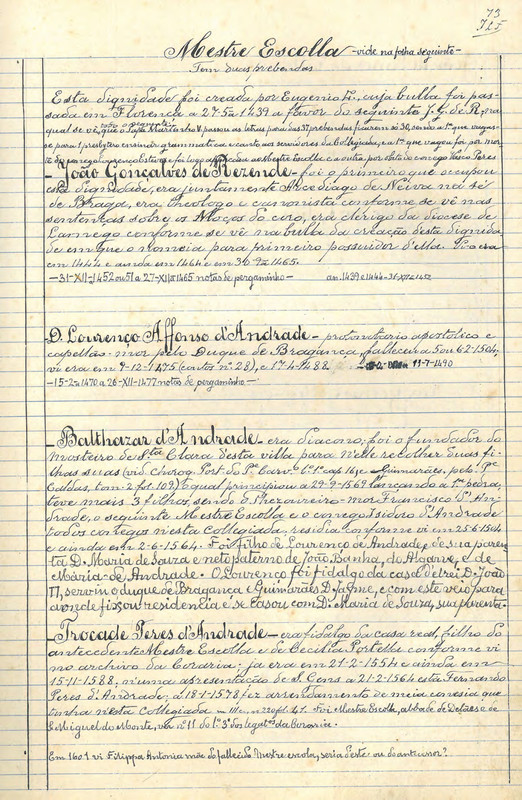 73
725
Mestre Escolla - vide na folha seguinte -
Tem duas prebendas
Esta dignidade foi creada por Eugenio 4º, cuja bulla foi pas-
sada em Florença a 27-5ª 1439 a favor do seguinte J. G. de R., na
qual se vê, que o Papa Martinho V passou as letras para das 37 prebendas ficarem so 30, sendo a 1ª que vagas-
se para 1 presbytero ensinar grammatica e canto aos servidores da Collegiada, e a 1ª que vagou foi por morte
do conego Gonçalo Esteves foi logo ao Mestre Escolla e a outra por obito do conego Vasco Peres
- João Gonçalves de Rezende - foi o primeiro que occupou
esta dignidade, era juntamente Arcediago de Neiva na sé
de Braga, era theologo e canonista conforme se vê nas
sentenças sobre os Moços do coro, era clerigo da diocese de
Lamego conforme se vê na bulla da creação desta dignida
de em que o nomeia para primeiro possuidor d'ella. Vivo era
em 1444 e ainda em 1464 e em 30-9º 1465.
- 31-XII-1452 ou 51 a 27-XII 1465 notas de pergaminho - an. 1439 e 1444-31-XII-1452
D. Lourenço Affonso d'Andrade - protonotario apostolico e
capellão-mor pelo Duque de Bragança, falleceu a 5 ou 6-2-1504,
vivo era em 9-12-1475 (contos nº 28), e 17-4-1488 11-7-1490
- 15-2ª 1470 a 26-XII-1477 notas de pergaminho -
- Balthazar d'Andrade - era diacono; foi o fundador do
mosteiro de Sta Clara desta villa para n'elle recolher duas fi-
lhas suas (vid. Chorog. Port. do Pe Carvo tº 1º cap. 16, e Guimarães, pelo Pe
Caldas, tom. 2 fol. 109) E qual principiou a 29-9-1569 lançando a 1ª pedra,
teve mais 3 filhos, sendo o Thezoureiro-mor Francisco d'An-
drade, o seguinte Mestre Escolla e o conego Isidoro d'Andrade
todos conegos nesta Collegiada, residia conforme vi em 25-6-1504
e ainda em 2-6-1564. Foi filho de Lourenço de Andrade, e de sua paren-
ta D. Maria de Souza e neto paterno de João Banha, do Algarve, e de
Maria de Andrade. O Lourenço foi fidalgo da casa d'elrei D. João
II, serviu o duque de Bragança e Guimarães D. Jayme, e com este veio para
aonde fixou residencia e se casou com D. Maria de Souza, sua parenta.
- Trocade Peres d'Andrade - era fidalgo da casa real, filho do
antecedente Mestre Escolla e de Cecilia Portella conforme vi
no archivo da Coraria; já era em 21-2-1554 e ainda em
15-11-1588, n'uma apresentação de S. Cons a 21-2-1564 está Fernando
Peres d'Andrade, a 18-1-1578 fez arrendamento de meia conesia que
tinha nesta Collegiada - nº 220 fl. 41. Foi Mestre Escolla, abbade de e de
S. Miguel do Monte, vai nº 11 do lº 3º dos legatos da Coraria.
Em 1601 vi Filippa Antonia mãe do fallecido Mestre escola, seria d'este ou do antecessor?